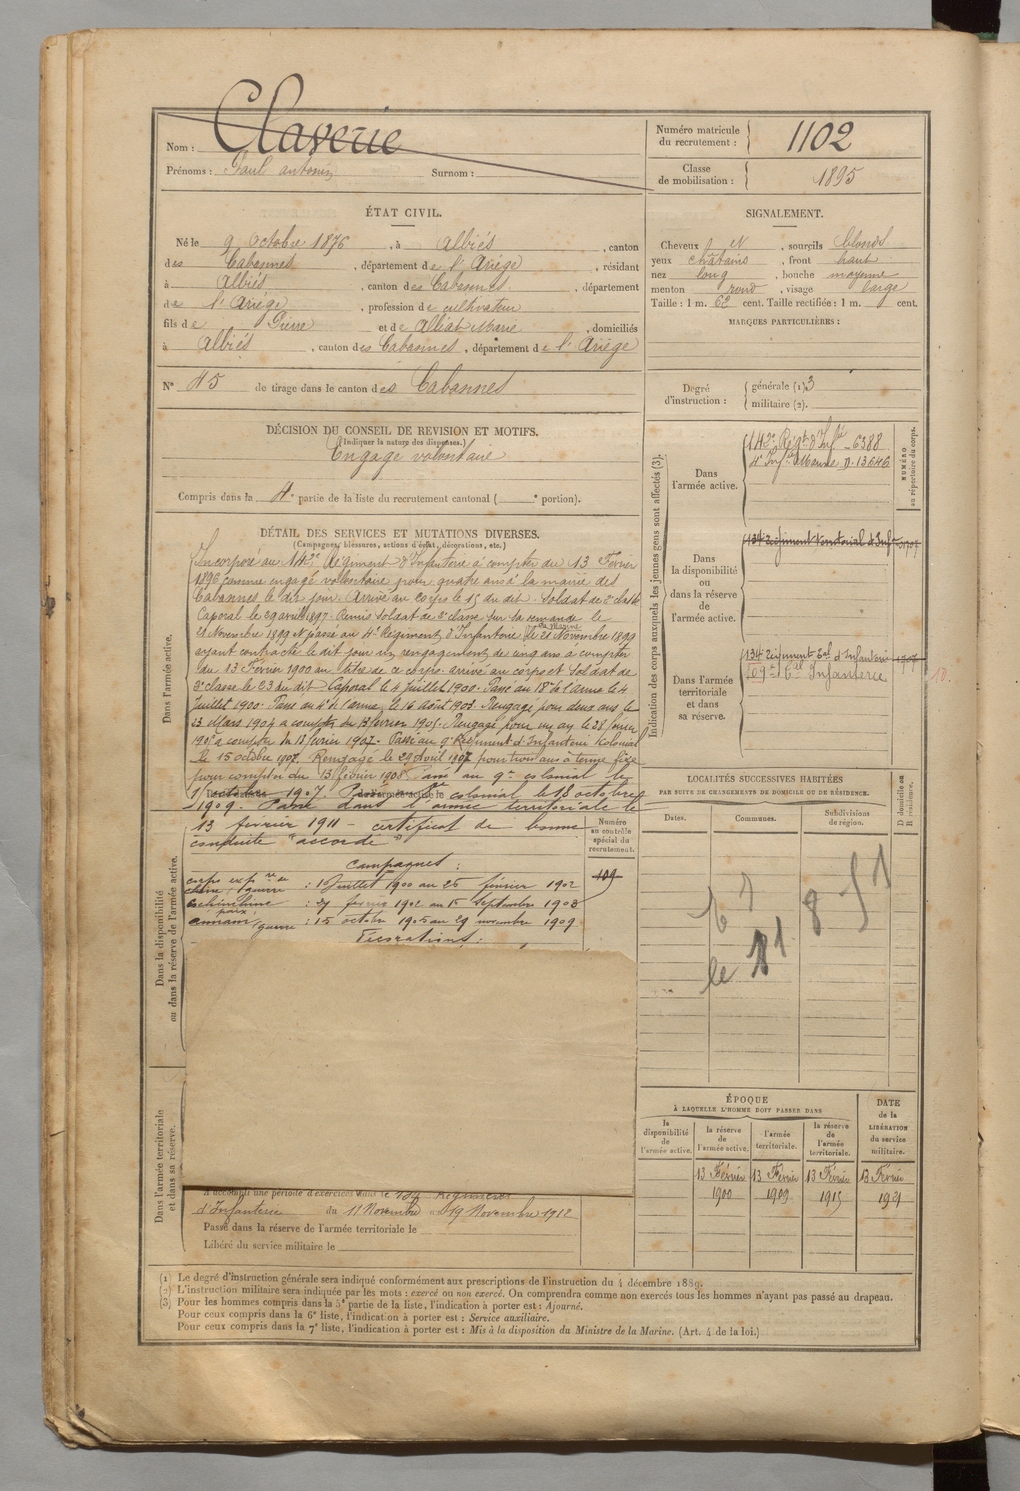 Nom : Claverie
Prénoms : Paul antonin Surnom :
Numéro matricule du recrutement : 1102
Classe de mobilisation : 1895
ÉTAT CIVIL.
Né le 9 Octobre 1876, à Albiés, canton
des Cabannes, département de l'Ariége, résidant
à Albiés, canton des Cabannes, département
de l'Ariége, profession de cultivateur
fils de Pierre et de Alliat Marie, domiciliés
à Albiés, canton des Cabannes, département de l'Ariége
N° 45 de tirage dans le canton des Cabannes
SIGNALEMENT.
Cheveux et N, sourcils blonds
yeux châtains, front haut
nez long, bouche moyenne
menton rond, visage large
Taille : 1 m. 62 cent. Taille rectifiée : 1 m. cent.
MARQUES PARTICULIÈRES :
Degré d'instruction : générale (1) 3
militaire (2).
DÉCISION DU CONSEIL DE REVISION ET MOTIFS.
(Indiquer la nature des dispenses.)
Engagé volontaire
Compris dans la 4e partie de la liste du recrutement cantonal ( e portion).
Indication des corps auxquels les jeunes gens sont affectés (3).
NUMÉRO au répertoire du corps.
Dans l'armée active.
142e Régt d'Infie 6388
4e Infie Marine N. 13646
Dans la disponibilité ou dans la réserve de l'armée active.
134 Régiment territorial d'Infie 1707
Dans l'armée territoriale et dans sa réserve.
134 Régiment Eal d'Infanterie 1707
109e Rt Eal Infanterie
10.
DÉTAIL DES SERVICES ET MUTATIONS DIVERSES.
(Campagnes, blessures, actions d'éclat, décorations, etc.)
Dans l'armée active.
Incorporé au 142e Régiment d'Infanterie à compter du 13 Février
1896 comme engagé volontaire pour quatre ans à la mairie des
Cabannes le dit jour. Arrivé au corps le 15 du dit. Soldat de 2e classe
Caporal le 29 avril 1897. Remis soldat de 2e classe sur sa demande le
21 Novembre 1899 et passé au 4e Régiment d'Infanterie de Marine le 21 Novembre 1899
ayant contracté le dit jour un rengagement de cinq ans à compter
du 13 Février 1900 au titre de ce corps arrivé au corps et soldat de
2e classe le 23 du dit Caporal le 4 Juillet 1900. Passé au 18e de l'arme le 4
Juillet 1900. Passé au 4e de l'arme, le 16 Août 1903. Rengagé pour deux ans le
23 Mars 1904 a compter du 13 février 1905. Rengagé pour un an le 28 février
a compter du 13 février 1907. Passé au 9e Régiment d'Infanterie Coloniale
le 15 octobre 1907. Rengagé le 29 Avril 1907 pour trois ans à terme fixe
pour compter du 13 février 1908. Passé au 9e colonial le
octobre 1907. Passé au colonial le 18 octobre
1909. Passé dans l'armée territoriale le
13 février 1911 – certificat de bonne
conduite "accordé"
Campagnes :
corps expre de chine, guerre : 10 Juillet 1900 au 25 février 1902
cochinchine paix : 27 fevrier 1902 au 15 septembre 1903
annam, guerre : 15 octobre 1905 au 29 novembre 1909.
Décorations :
Numéro au contrôle spécial du recrutement.
109
Dans la disponibilité ou dans la réserve de l'armée active.
Dans l'armée territoriale et dans sa réserve.
A accompli une période d'exercices dans le 134 Régiment
d'Infanterie du 11 Novembre au 19 Novembre 1912
Passé dans la réserve de l'armée territoriale le
Libéré du service militaire le
LOCALITÉS SUCCESSIVES HABITÉES
PAR SUITE DE CHANGEMENTS DE DOMICILE OU DE RÉSIDENCE.
Dates.
Communes.
Subdivisions de région.
D domicile ou R résidence.
ÉPOQUE
À LAQUELLE L'HOMME DOIT PASSER DANS
la disponibilité de l'armée active.
la réserve de l'armée active.
l'armée territoriale.
la réserve de l'armée territoriale.
DATE de la LIBÉRATION du service militaire.
13 Février 1900
13 Février 1909
13 Février 1915
13 Février 1921
(1) Le degré d'instruction générale sera indiqué conformément aux prescriptions de l'instruction du 4 décembre 1889.
(2) L'instruction militaire sera indiquée par les mots : exercé ou non exercé. On comprendra comme non exercés tous les hommes n'ayant pas passé au drapeau.
(3) Pour les hommes compris dans la 5e partie de la liste, l'indication à porter est : Ajourné.
Pour ceux compris dans la 6e liste, l'indication à porter est : Service auxiliaire.
Pour ceux compris dans la 7e liste, l'indication à porter est : Mis à la disposition du Ministre de la Marine. (Art. 4 de la loi.)